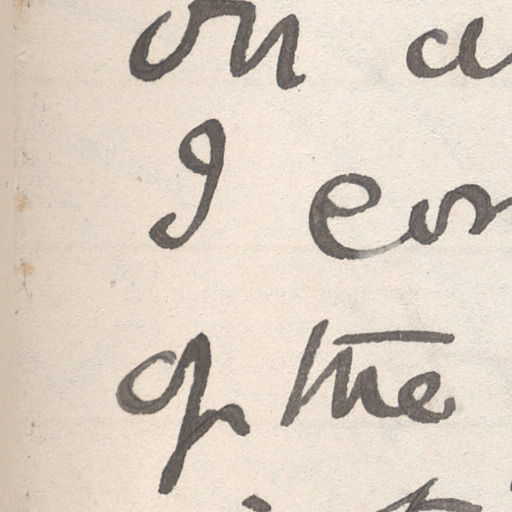 on a
I con
of the